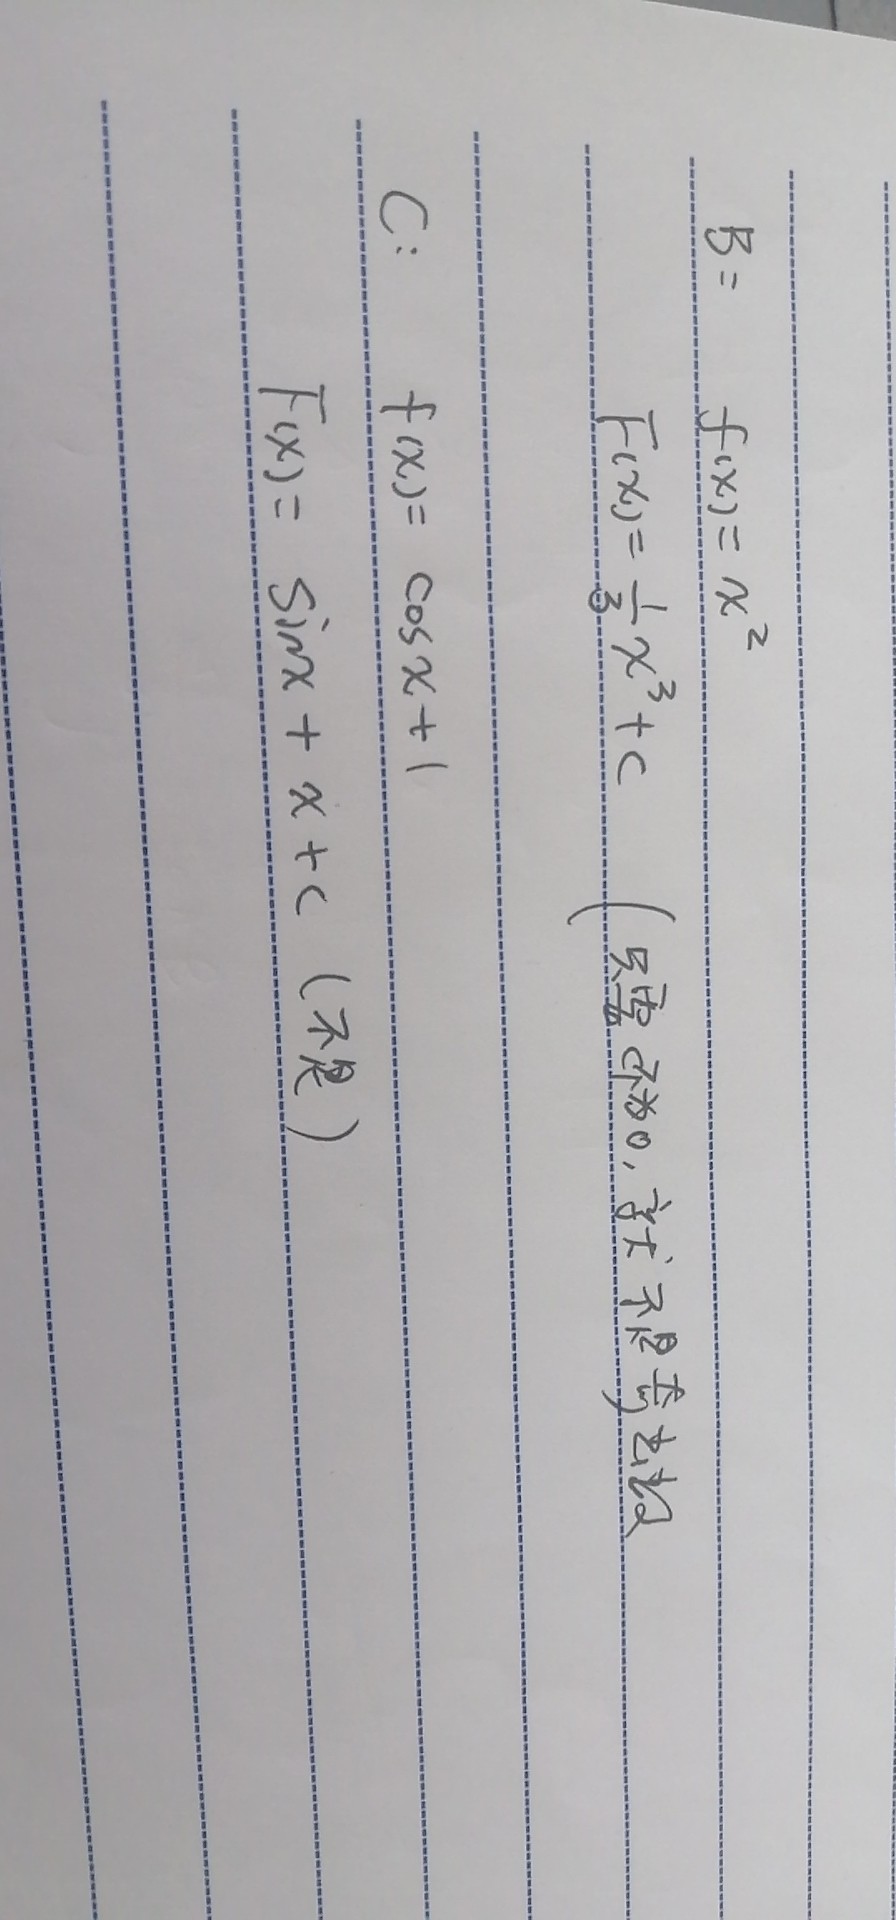 B = f(x) = x²
F(x) = 1/3 x³ + c (只需c不为0, 就不是奇函数
C: f(x) = cos x + 1
F(x) = sin x + x + c (不是)